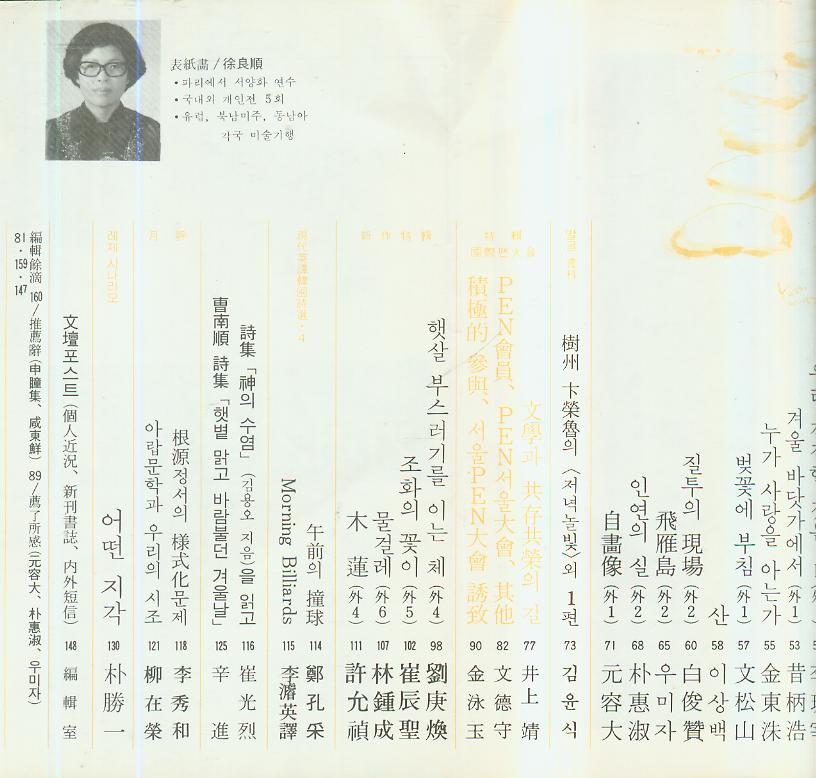 表紙畵/徐良順
•파리에서 서양화 연수
•국내외 개인전 5회
•유럽, 북남미주, 동남아
각국 미술기행
겨울 바닷가에서(外1) 53 昔柄浩
누가 사랑을 아는가 55 金東洙
벚꽃에 부침(外1) 57 文松山
산 58 이상백
질투의 現場(外2) 60 白俊贊
飛雁島(外2) 65 우미자
인연의 실(外2) 68 朴惠淑
自畵像(外1) 71 元容大
발굴資料
樹州 卞榮魯의 〈저녁놀빛〉외 1편 73 김윤식
特輯
國際펜大會
文學과 共存共榮의 길 77 井上靖
PEN會員、PEN서울大會、其他 82 文德守
積極的 參與、서울PEN大會 誘致 90 金泳玉
新作特輯
햇살 부스러기를 이는 체(外4) 98 劉庚煥
조화의 꽃이(外5) 102 崔辰聖
물걸레(外6) 107 林鍾成
木蓮(外4) 111 許允禎
現代英譯韓國詩選・4
午前의 撞球 114 鄭孔采
Morning Billiards 115 李濬英譯
詩集「神의 수염」(김용오 지음)을 읽고 116 崔光烈
曺南順 詩集「햇볕 맑고 바람불던 겨울날」 125 辛進
月評
根源정서의 樣式化문제 118 李秀和
아랍문학과 우리의 시조 121 柳在榮
레제 시나리오
어떤 지각 130 朴勝一
文壇포스트(個人近況、新刊書誌、內外短信) 148 編輯室
編輯餘滴 160/推薦辭(申瞳集、咸東鮮) 89/薦了所感(元容大、朴惠淑、우미자)
81・159・147